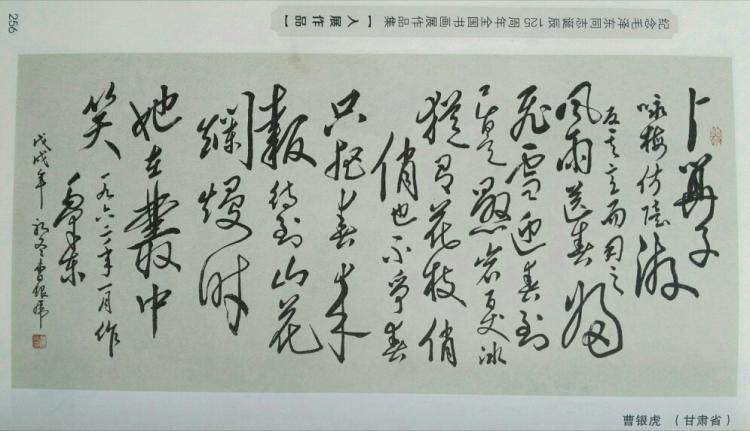 纪念毛泽东同志诞辰125周年全国书画展作品集【入展作品】
256
卜算子
咏梅仿陆游
反其意而用之
風雨送春歸
飛雪迎春到
已是懸岩百丈冰
猶有花枝俏
俏也不爭春
只把春来
報待到山花
爛熳时
她在叢中
笑
一九六二年一月作
澤东
戊戌年初冬曹银虎
曹银虎 (甘肃省)